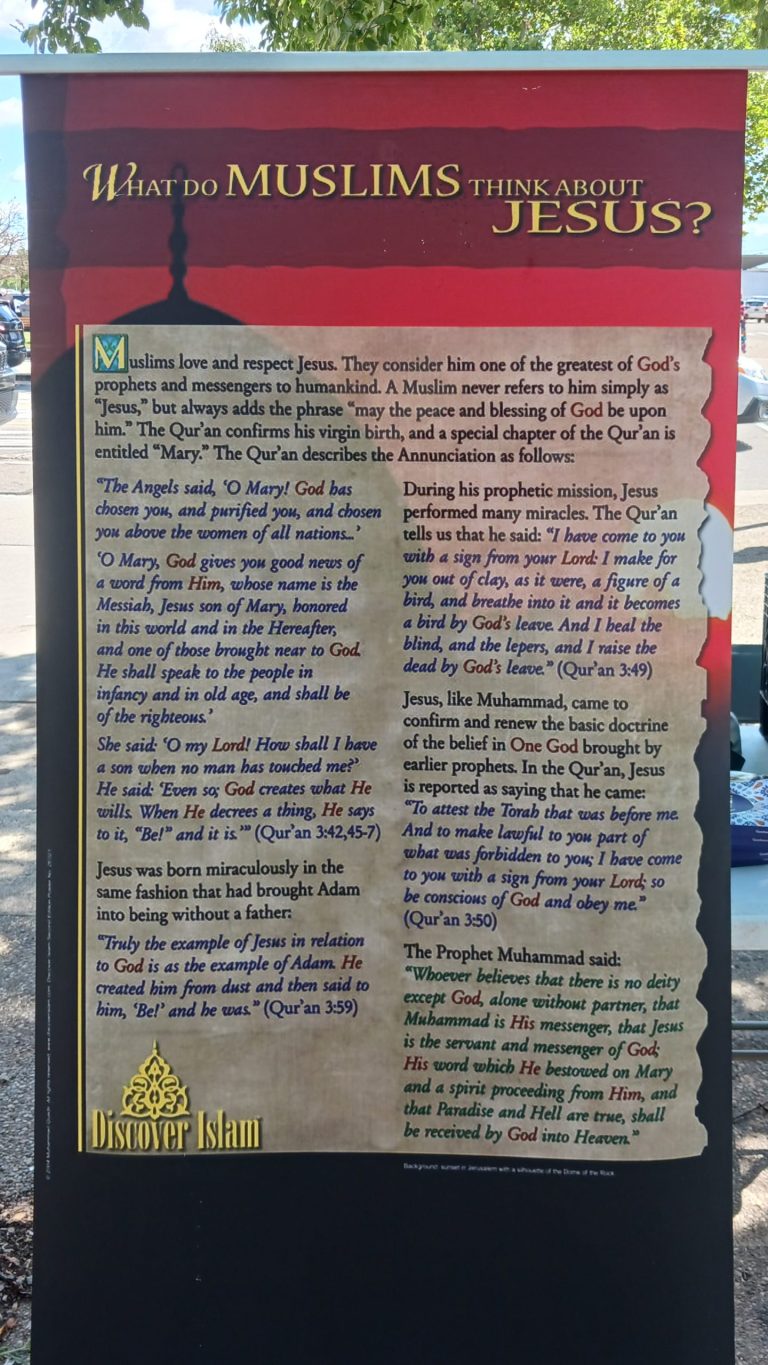 WHAT DO MUSLIMS THINK ABOUT
JESUS?
Muslims love and respect Jesus. They consider him one of the greatest of God's
prophets and messengers to humankind. A Muslim never refers to him simply as
"Jesus," but always adds the phrase "may the peace and blessing of God be upon
him." The Qur'an confirms his virgin birth, and a special chapter of the Qur'an is
entitled "Mary." The Qur'an describes the Annunciation as follows:
"The Angels said, 'O Mary! God has
chosen you, and purified you, and chosen
you above the women of all nations...'
'O Mary, God gives you good news of
a word from Him, whose name is the
Messiah, Jesus son of Mary, honored
in this world and in the Hereafter,
and one of those brought near to God.
He shall speak to the people in
infancy and in old age, and shall be
of the righteous.'
She said: 'O my Lord! How shall I have
a son when no man has touched me?'
He said: 'Even so; God creates what He
wills. When He decrees a thing, He says
to it, "Be!" and it is.'" (Qur'an 3:42,45-7)
Jesus was born miraculously in the
same fashion that had brought Adam
into being without a father:
"Truly the example of Jesus in relation
to God is as the example of Adam. He
created him from dust and then said to
him, 'Be!' and he was." (Qur'an 3:59)
Discover Islam
During his prophetic mission, Jesus
performed many miracles. The Qur'an
tells us that he said: "I have come to you
with a sign from your Lord: I make for
you out of clay, as it were, a figure of a
bird, and breathe into it and it becomes
a bird by God's leave. And I heal the
blind, and the lepers, and I raise the
dead by God's leave." (Qur'an 3:49)
Jesus, like Muhammad, came to
confirm and renew the basic doctrine
of the belief in One God brought by
earlier prophets. In the Qur'an, Jesus
is reported as saying that he came:
"To attest the Torah that was before me.
And to make lawful to you part of
what was forbidden to you; I have come
to you with a sign from your Lord; so
be conscious of God and obey me."
(Qur'an 3:50)
The Prophet Muhammad said:
"Whoever believes that there is no deity
except God, alone without partner, that
Muhammad is His messenger, that Jesus
is the servant and messenger of God;
His word which He bestowed on Mary
and a spirit proceeding from Him, and
that Paradise and Hell are true, shall
be received by God into Heaven."
Background: sunset in Jerusalem with a silhouette of the Dome of the Rock.